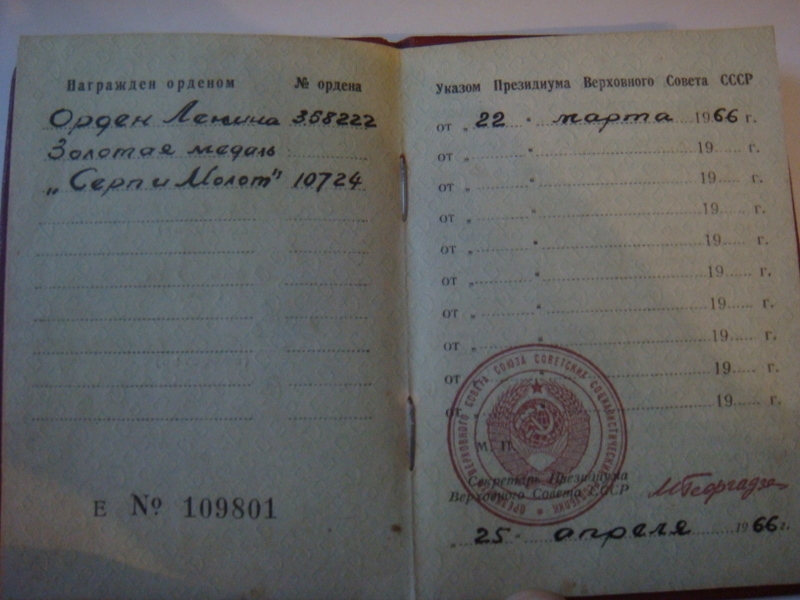 Награжден орденом № ордена
Орден Ленина 358222
Золотая медаль
„Серп и Молот" 10724
Е № 109801
Указом Президиума Верховного Совета СССР
от „ 22 " марта 1966 г.
от „ " 19 г.
от „ " 19 г.
от „ " 19 г.
от „ " 19 г.
от „ " 19 г.
от „ " 19 г.
от „ " 19 г.
от „ " 19 г.
от „ " 19 г.
М. П.
Секретарь Президиума
Верховного Совета СССР
МГеоргадзе
„ 25 " апреля 1966 г.
ВЕРХОВНОГО СОВЕТА СОЮЗА СОВЕТСКИХ СОЦИАЛИСТИЧЕСКИХ